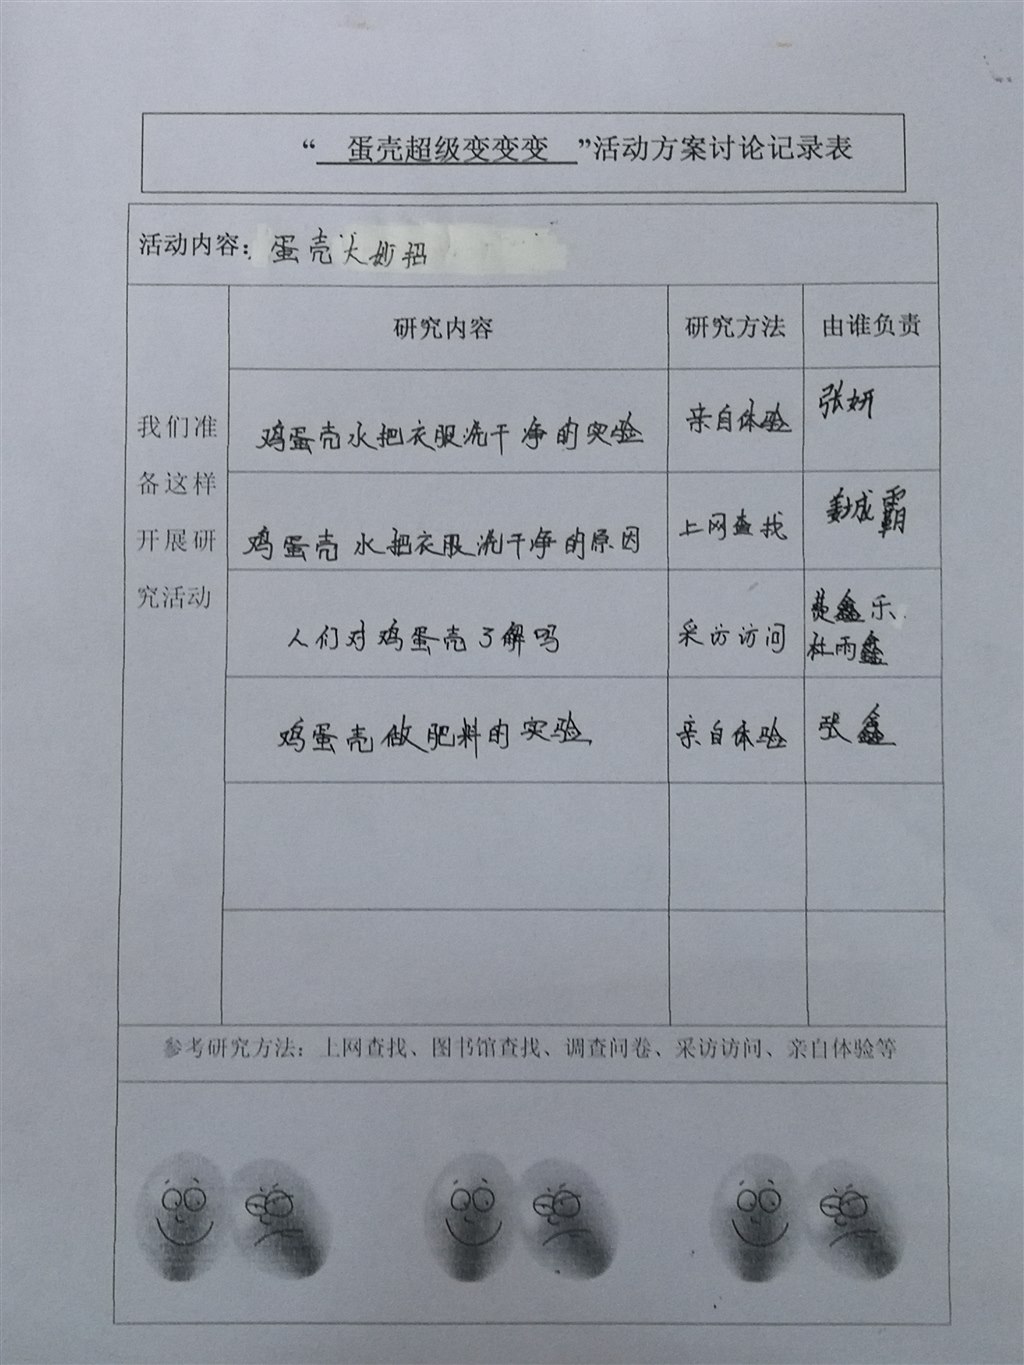 “ 蛋壳超级变变变 ”活动方案讨论记录表
活动内容：蛋壳大妙招
研究内容 研究方法 由谁负责
我们准
备这样
开展研
究活动
鸡蛋壳水把衣服洗干净的实验 亲自体验 张妍
鸡蛋壳水把衣服洗干净的原因 上网查找 成霸
人们对鸡蛋壳了解吗 采访访问 鑫乐
杜雨鑫
鸡蛋壳做肥料的实验 亲自体验 张鑫
参考研究方法：上网查找、图书馆查找、调查问卷、采访访问、亲自体验等